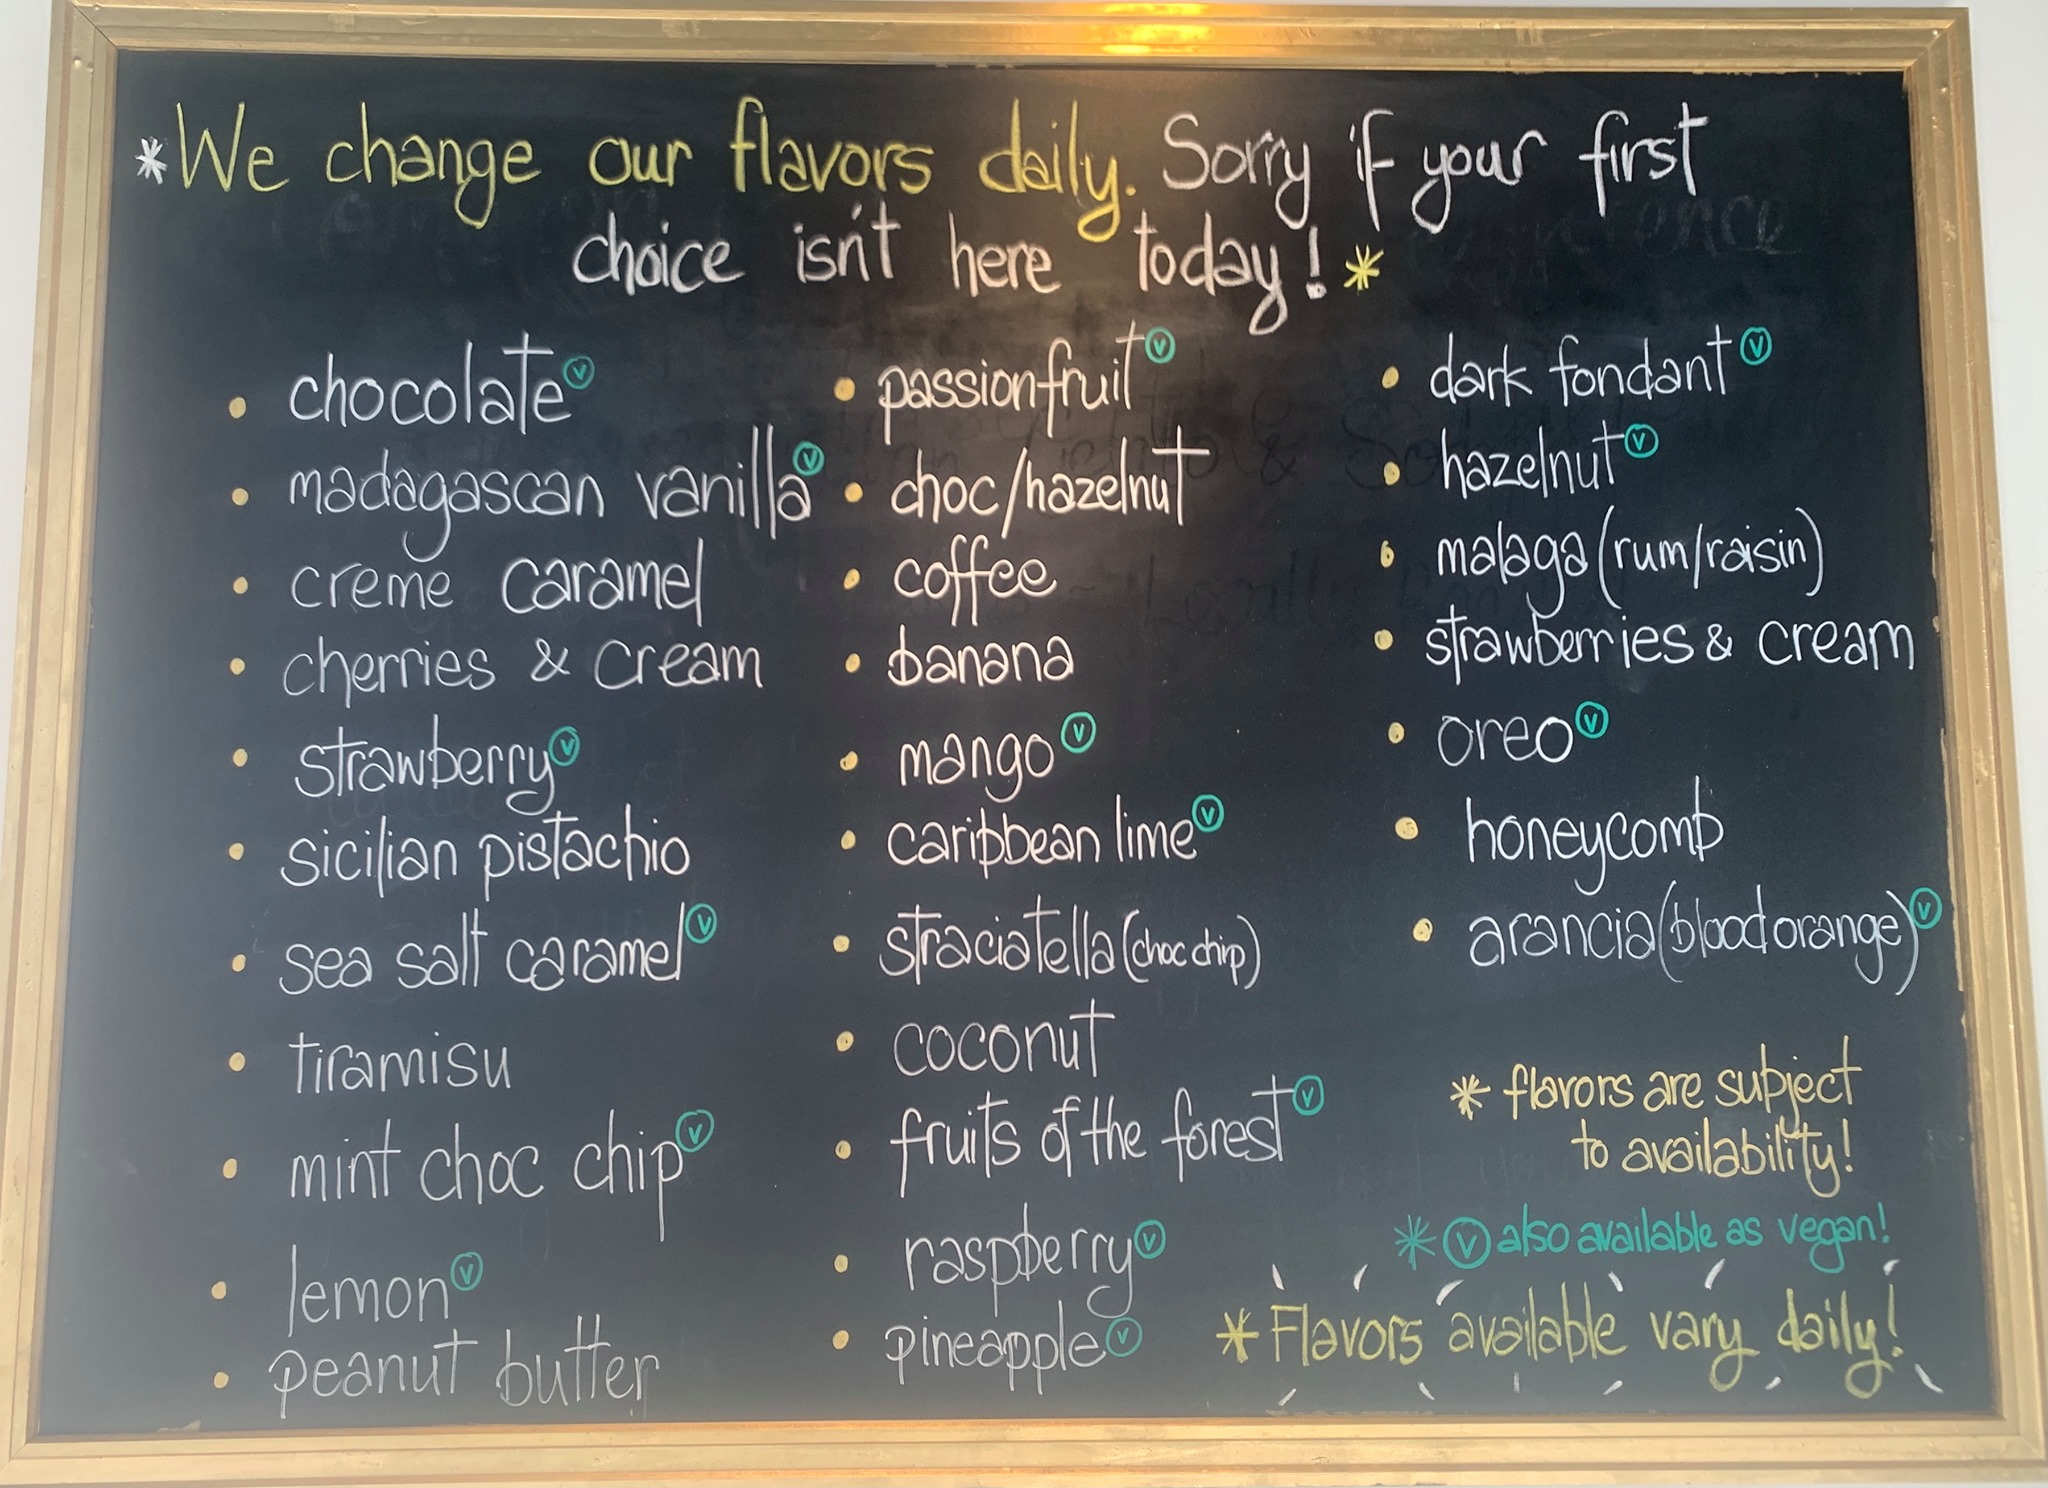 *We change our flavors daily. Sorry if your first
choice isn't here today! *
• chocolate Ⓥ
• madagascan vanilla Ⓥ
• creme caramel
• cherries & cream
• strawberry Ⓥ
• sicilian pistachio
• sea salt caramel Ⓥ
• tiramisu
• mint choc chip Ⓥ
• lemon Ⓥ
• peanut butter
• passionfruit Ⓥ
• choc/hazelnut
• coffee
• banana
• mango Ⓥ
• caribbean lime Ⓥ
• straciatella (choc chip)
• coconut
• fruits of the forest Ⓥ
• raspberry Ⓥ
• pineapple Ⓥ
• dark fondant Ⓥ
• hazelnut Ⓥ
• malaga (rum/raisin)
• strawberries & cream
• oreo Ⓥ
• honeycomb
• arancia (blood orange) Ⓥ
* flavors are subject
to availability!
* Ⓥ also available as vegan!
* Flavors available vary daily!